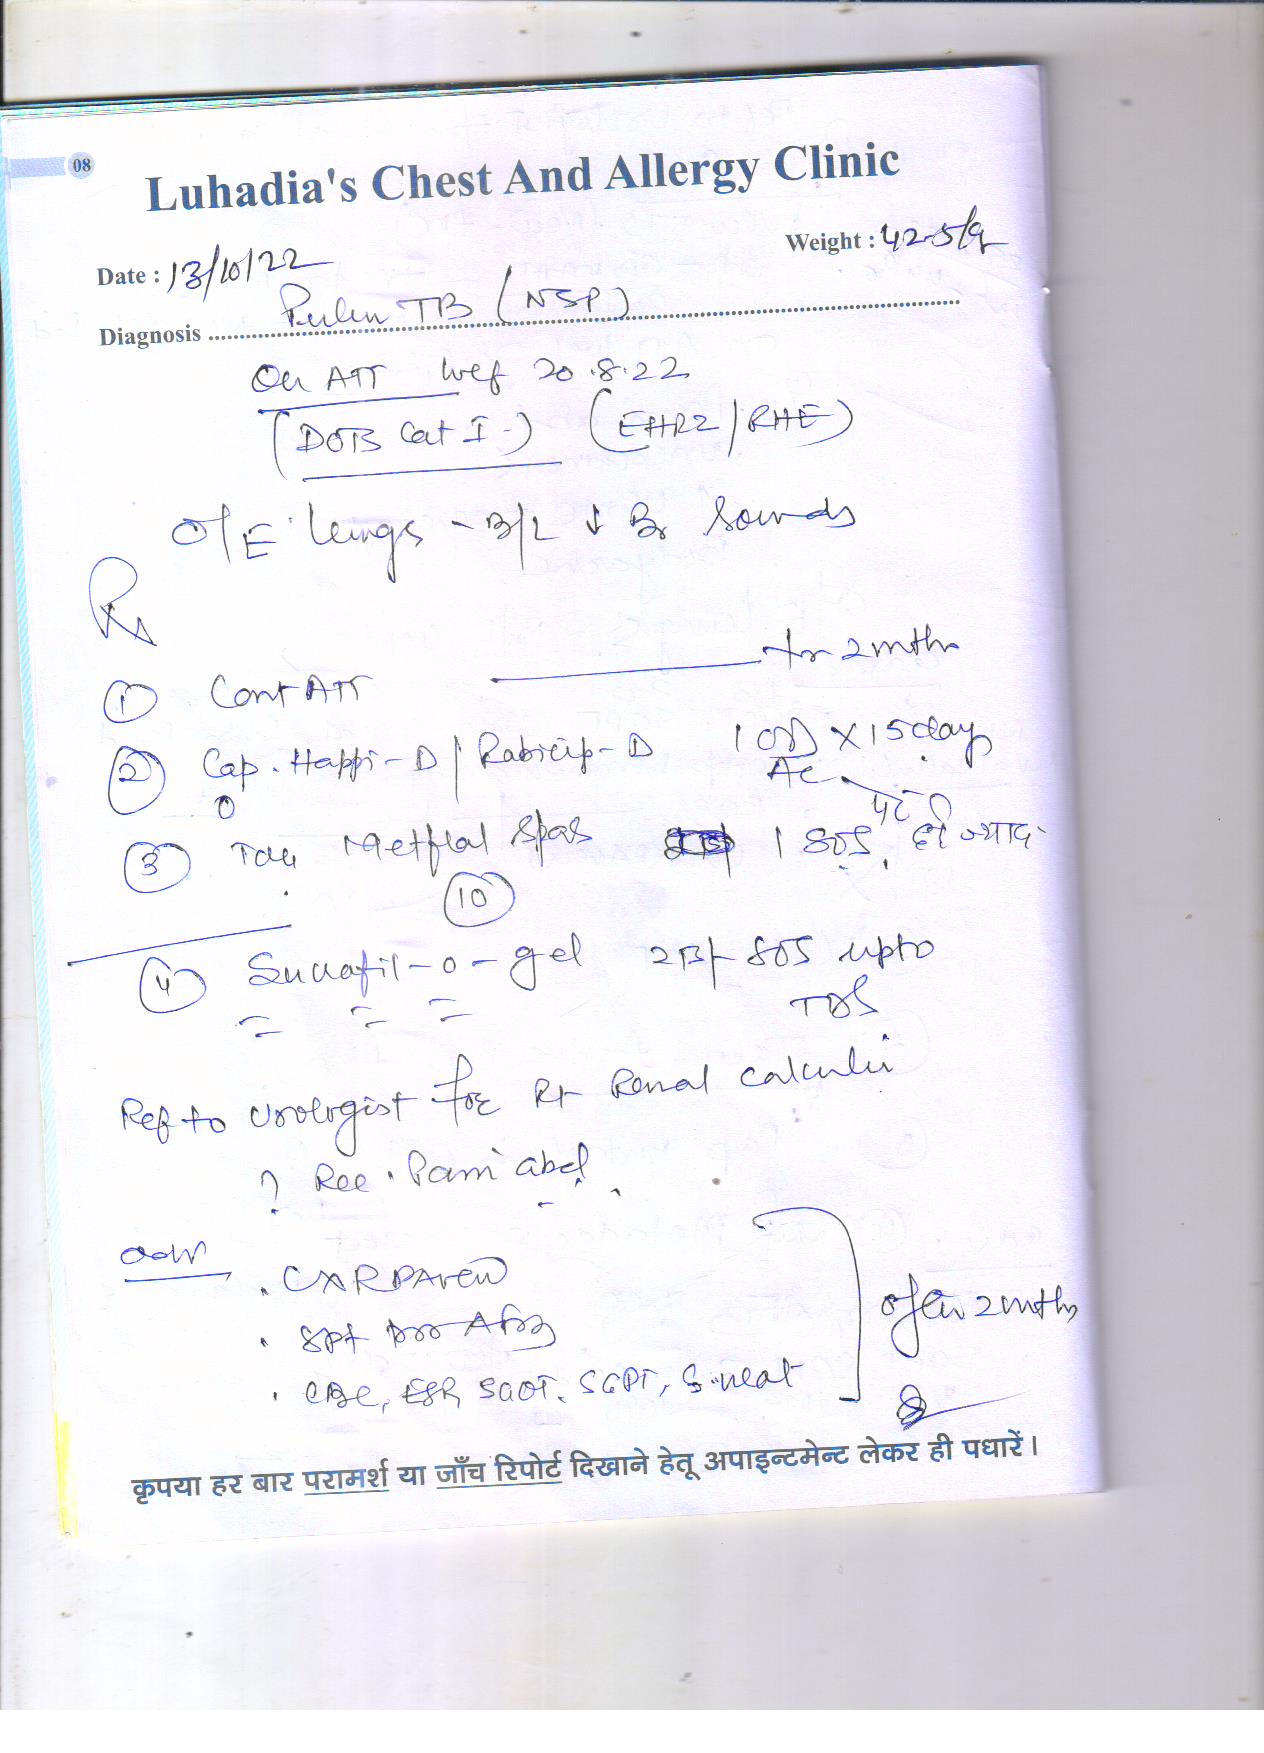 08
Luhadia's Chest And Allergy Clinic
Weight : 42.5kg
Date : 13/10/22
Diagnosis Pulm TB (NSP)
On ATT wef 20.8.22
(DOTS Cat I) (EHRZ/RHE)
O/E lungs - B/L ↓ Br Sounds
Rx
① Cont ATT ——— for 2 mths
② Cap. Happi-D / Rabicip-D 1 OD x 15 days
AC
③ Tab Meftal Spas 1 SOS, पेट दर्द ज्यादा
⑩
④ Sucrafil-O-gel 2 tsf SOS upto
TDS
Ref to Urologist for Rt Renal calculi
? Rec. Pain abd
Adv
. CXR PA view
. Spt for AFB
. CBC, ESR, SGOT, SGPT, S.creat
after 2 mths
कृपया हर बार परामर्श या जाँच रिपोर्ट दिखाने हेतू अपाइन्टमेन्ट लेकर ही पधारें।